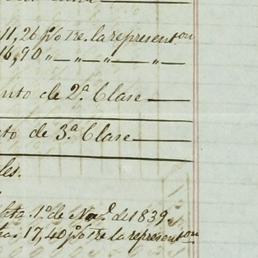 11,26 p% Tre. la represent.on
16,90 " — " — " — "
nto de 2.a Clase
to de 3.a Clase
les.
1.o de Nov.e de 1839
17,40 p% Tre la represent.on